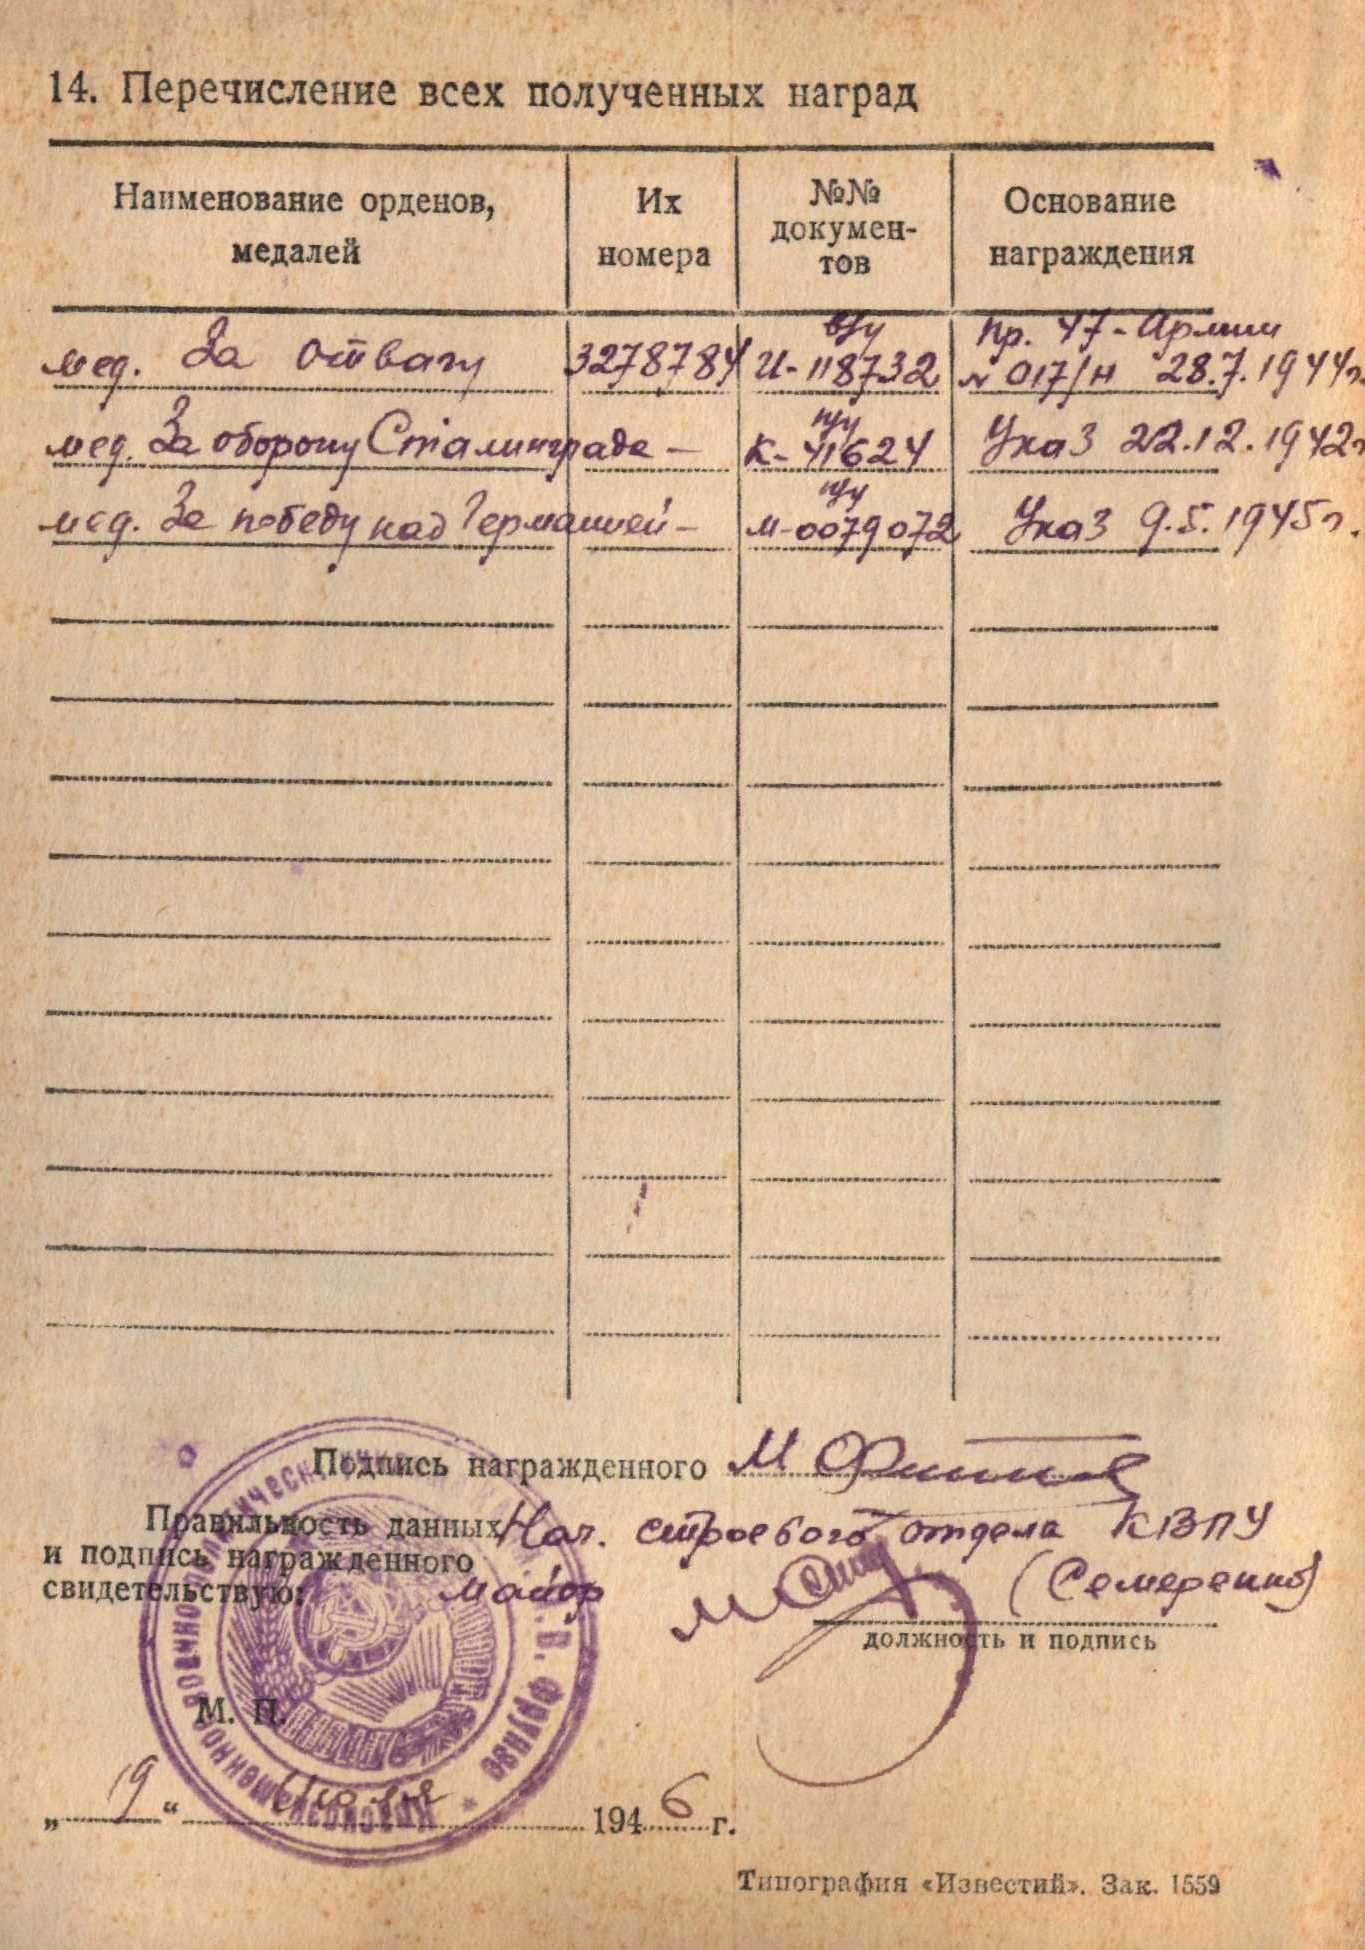 14. Перечисление всех полученных наград
Наименование орденов, медалей
Их номера
№№ докумен-тов
Основание награждения
в/у пр. 47-Армии
мед. За отвагу 3278784 И-118732 № 017/н 28.7.1944г.
п/у
мед. За оборону Сталинграда - К-41624 Указ 22.12.1942г
п/у
мед. За победу над Германией - М-0079072 Указ 9.5.1945г.
Подпись награжденного М
Правильность данных Нач. строевого отдела КВПУ
и подпись награжденного
свидетельствую: майор (Семеренко)
должность и подпись
М. П.
„19“ Июля 1946 г.
Краснознаменное Военно-политическое М.В. Фрунзе
Типография «Известий». Зак. 1559